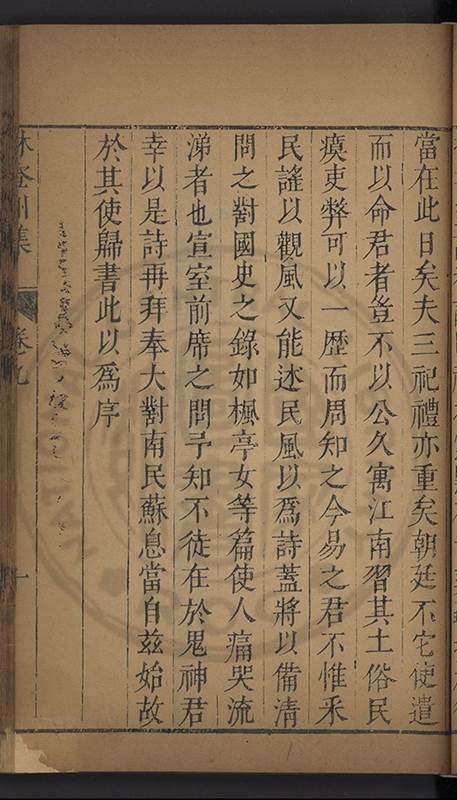 當在此日矣夫三祀禮亦重矣朝廷不它使遣
而以命君者豈不以公久寓江南習其土俗民
瘼吏弊可以一歷而周知之今易之君不惟采
民謠以觀風又能述民風以為詩蓋將以備清
問之對國史之錄如楓亭女等篇使人痛哭流
涕者也宣室前席之問予知不徒在於鬼神君
幸以是詩再拜奉大對南民蘇息當自茲始故
於其使歸書此以為序
卷九